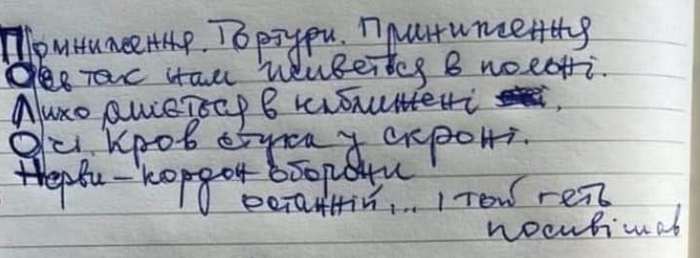 Помниження. Тортури. Приниження
Ось так нам живеться в полоні.
Лихо сміється в наближені
Осі. Кров стука у скроні.
Нерви – кордон оборони
останній... і той геть
посивішав